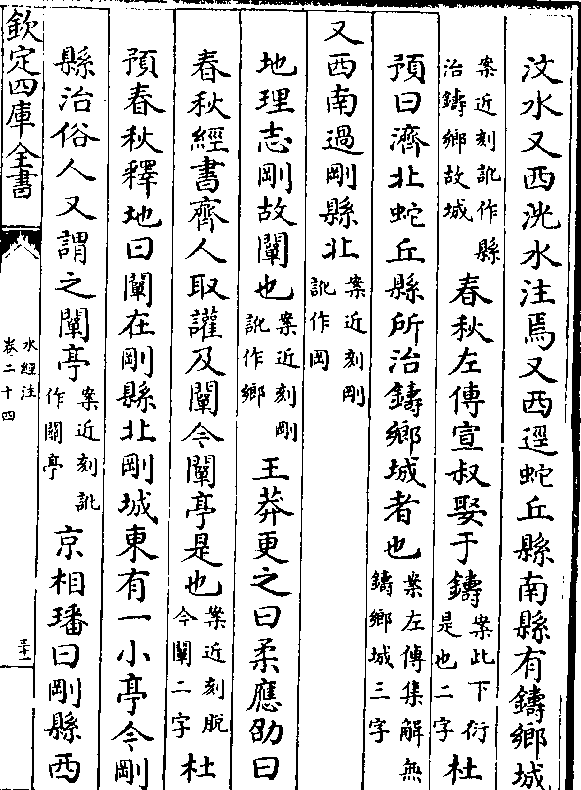 汶水又西洸水注焉又西逕蛇丘縣南縣有鑄鄉城
案近刻訛作縣治鑄鄉故城春秋左傳宣叔娶于鑄案此下衍是也二字杜
預曰濟北蛇丘縣所治鑄鄉城者也案左傳集解無鑄鄉城三字
又西南過剛縣北案近刻剛訛作岡
地理志剛故闡也案近刻剛訛作鄉王莽更之曰柔應劭曰
春秋經書齊人取讙及闡今闡亭是也案近刻脫今闡二字杜
預春秋釋地曰闡在剛縣北剛城東有一小亭今剛
縣治俗人又謂之闡亭案近刻訛作關亭京相璠曰剛縣西
欽定四庫全書
水經注
卷二十四